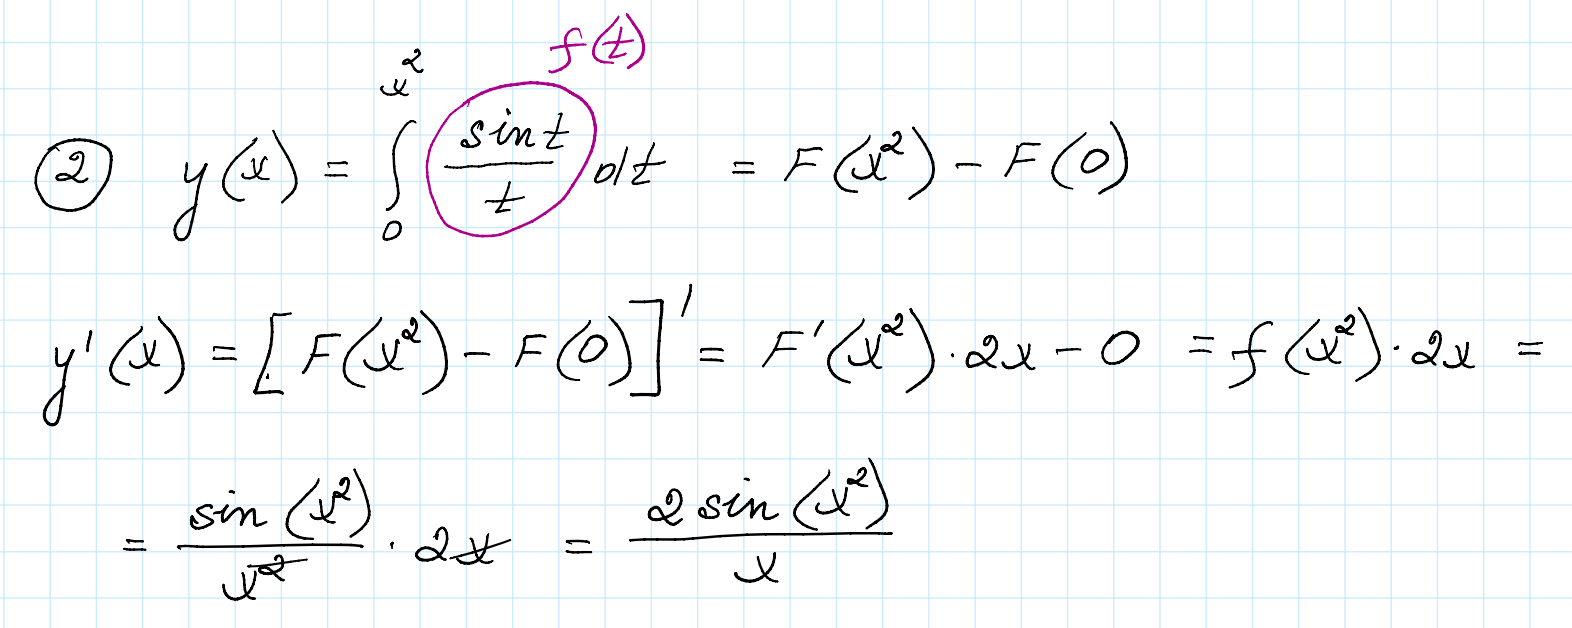 f(t)
② y(x) = ∫₀^{x²} \frac{sin t}{t} dt = F(x²) - F(0)
y'(x) = [F(x²) - F(0)]' = F'(x²) · 2x - 0 = f(x²) · 2x =
= \frac{sin (x²)}{x²} · 2x = \frac{2 sin (x²)}{x}